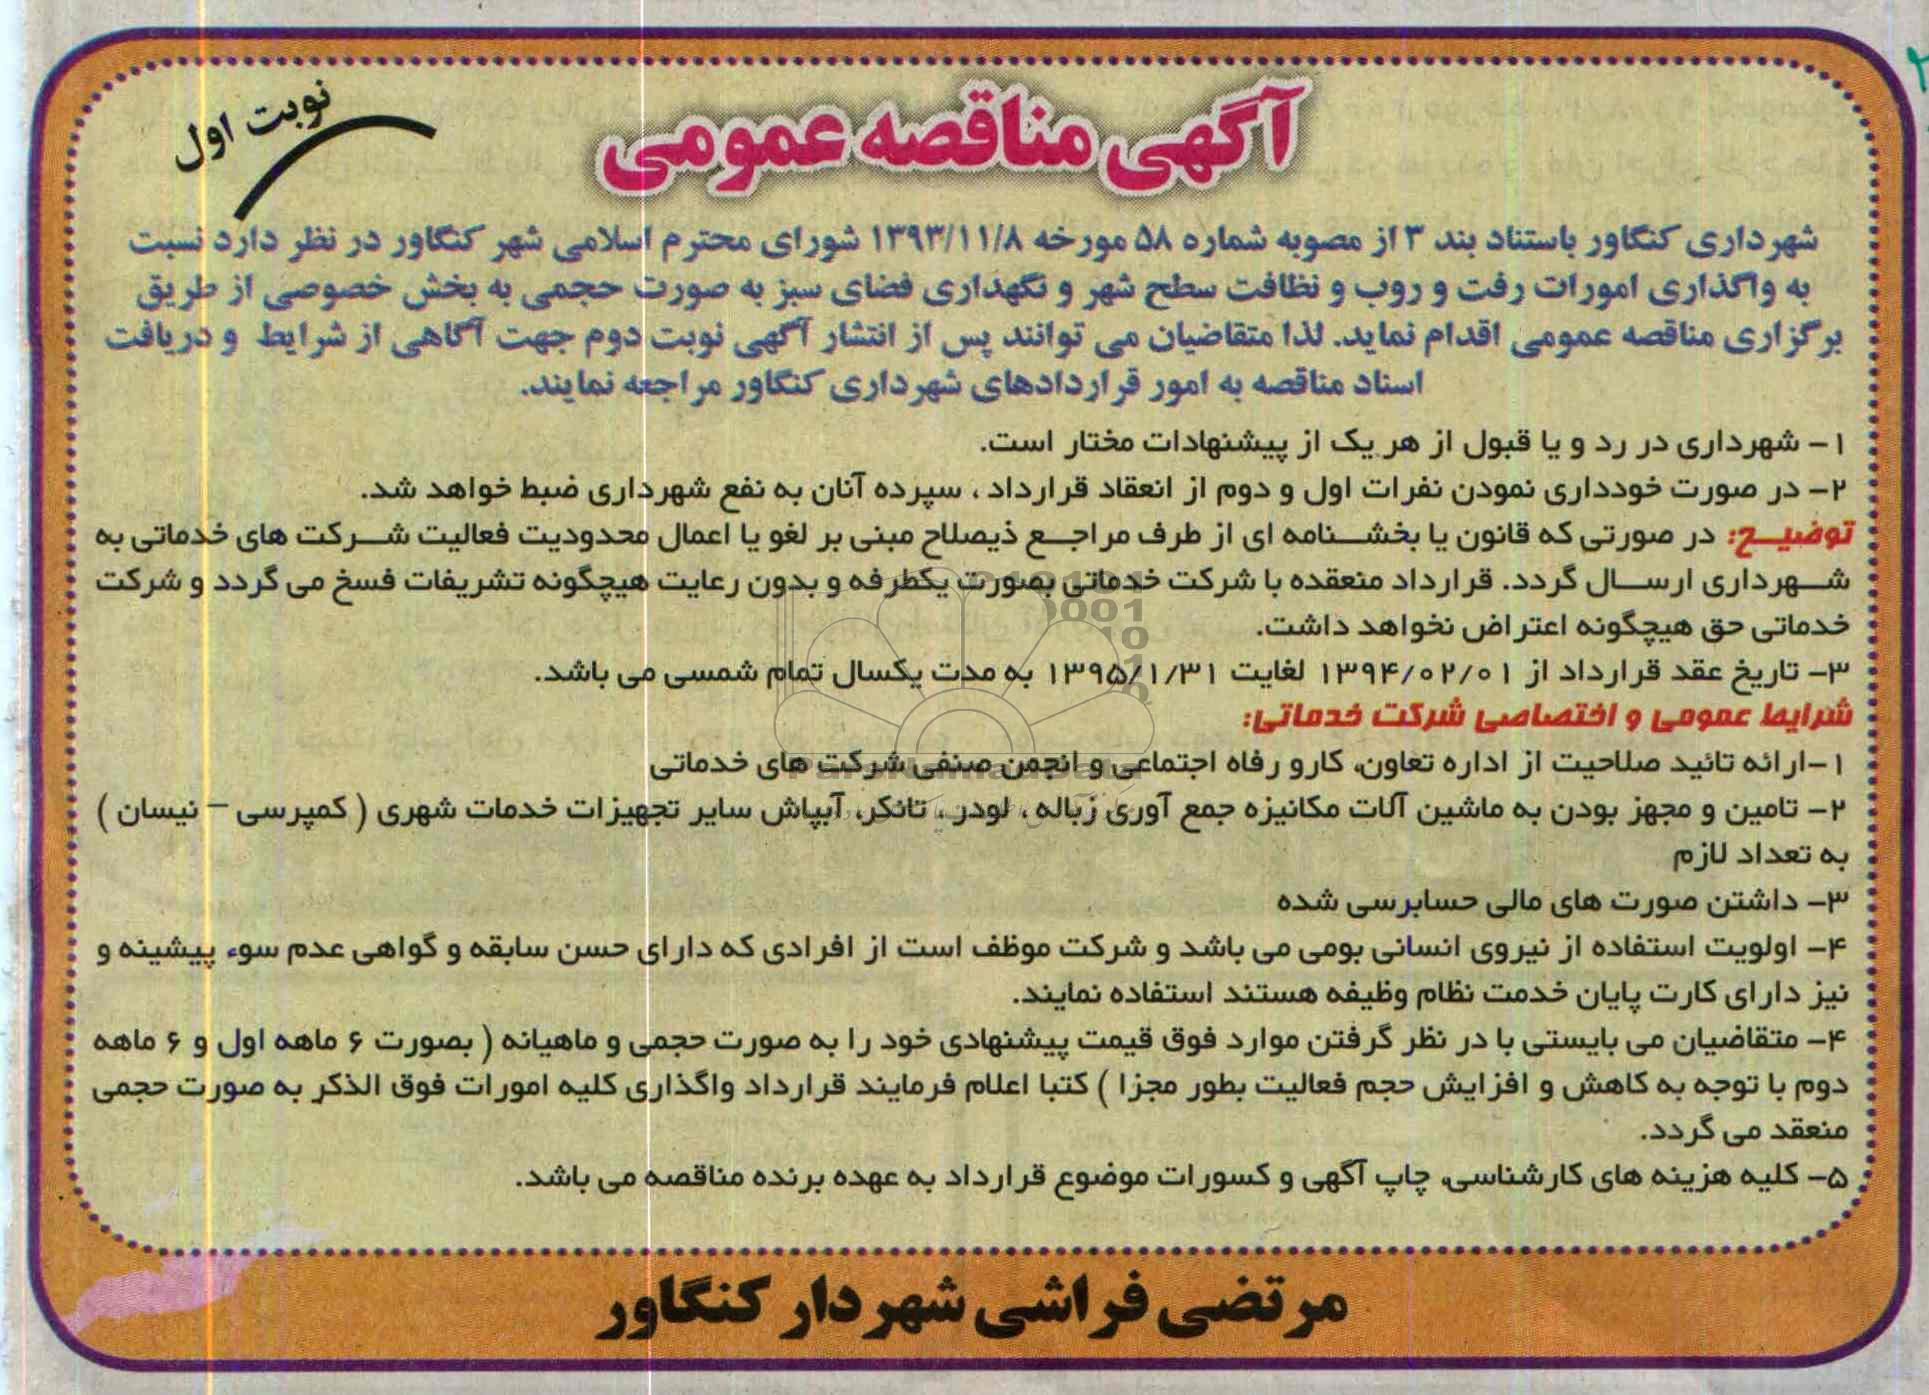 نوبت اول
آگهی مناقصه عمومی
شهرداری کنگاور باستناد بند ۳ از مصوبه شماره ۵۸ مورخه ۱۳۹۳/۱۱/۸ شورای محترم اسلامی شهر کنگاور در نظر دارد نسبت
به واگذاری امورات رفت و روب و نظافت سطح شهر و نگهداری فضای سبز به صورت حجمی به بخش خصوصی از طریق
برگزاری مناقصه عمومی اقدام نماید. لذا متقاضیان می توانند پس از انتشار آگهی نوبت دوم جهت آگاهی از شرایط و دریافت
اسناد مناقصه به امور قراردادهای شهرداری کنگاور مراجعه نمایند.
۱- شهرداری در رد و یا قبول از هر یک از پیشنهادات مختار است.
۲- در صورت خودداری نمودن نفرات اول و دوم از انعقاد قرارداد ، سپرده آنان به نفع شهرداری ضبط خواهد شد.
توضیح: در صورتی که قانون یا بخشنامه ای از طرف مراجع ذیصلاح مبنی بر لغو یا اعمال محدودیت فعالیت شرکت های خدماتی به
شهرداری ارسال گردد. قرارداد منعقده با شرکت خدماتی بصورت یکطرفه و بدون رعایت هیچگونه تشریفات فسخ می گردد و شرکت
خدماتی حق هیچگونه اعتراض نخواهد داشت.
۳- تاریخ عقد قرارداد از ۱۳۹۴/۰۲/۰۱ لغایت ۱۳۹۵/۱/۳۱ به مدت یکسال تمام شمسی می باشد.
شرایط عمومی و اختصاصی شرکت خدماتی:
۱-ارائه تائید صلاحیت از اداره تعاون، کارو رفاه اجتماعی و انجمن صنفی شرکت های خدماتی
۲- تامین و مجهز بودن به ماشین آلات مکانیزه جمع آوری زباله ، لودر ، تانکر، آبپاش سایر تجهیزات خدمات شهری ( کمپرسی – نیسان )
به تعداد لازم
۳- داشتن صورت های مالی حسابرسی شده
۴- اولویت استفاده از نیروی انسانی بومی می باشد و شرکت موظف است از افرادی که دارای حسن سابقه و گواهی عدم سوء پیشینه و
نیز دارای کارت پایان خدمت نظام وظیفه هستند استفاده نمایند.
۴- متقاضیان می بایستی با در نظر گرفتن موارد فوق قیمت پیشنهادی خود را به صورت حجمی و ماهیانه ( بصورت ۶ ماهه اول و ۶ ماهه
دوم با توجه به کاهش و افزایش حجم فعالیت بطور مجزا ) کتبا اعلام فرمایند قرارداد واگذاری کلیه امورات فوق الذکر به صورت حجمی
منعقد می گردد.
۵- کلیه هزینه های کارشناسی، چاپ آگهی و کسورات موضوع قرارداد به عهده برنده مناقصه می باشد.
مرتضی فراشی شهردار کنگاور